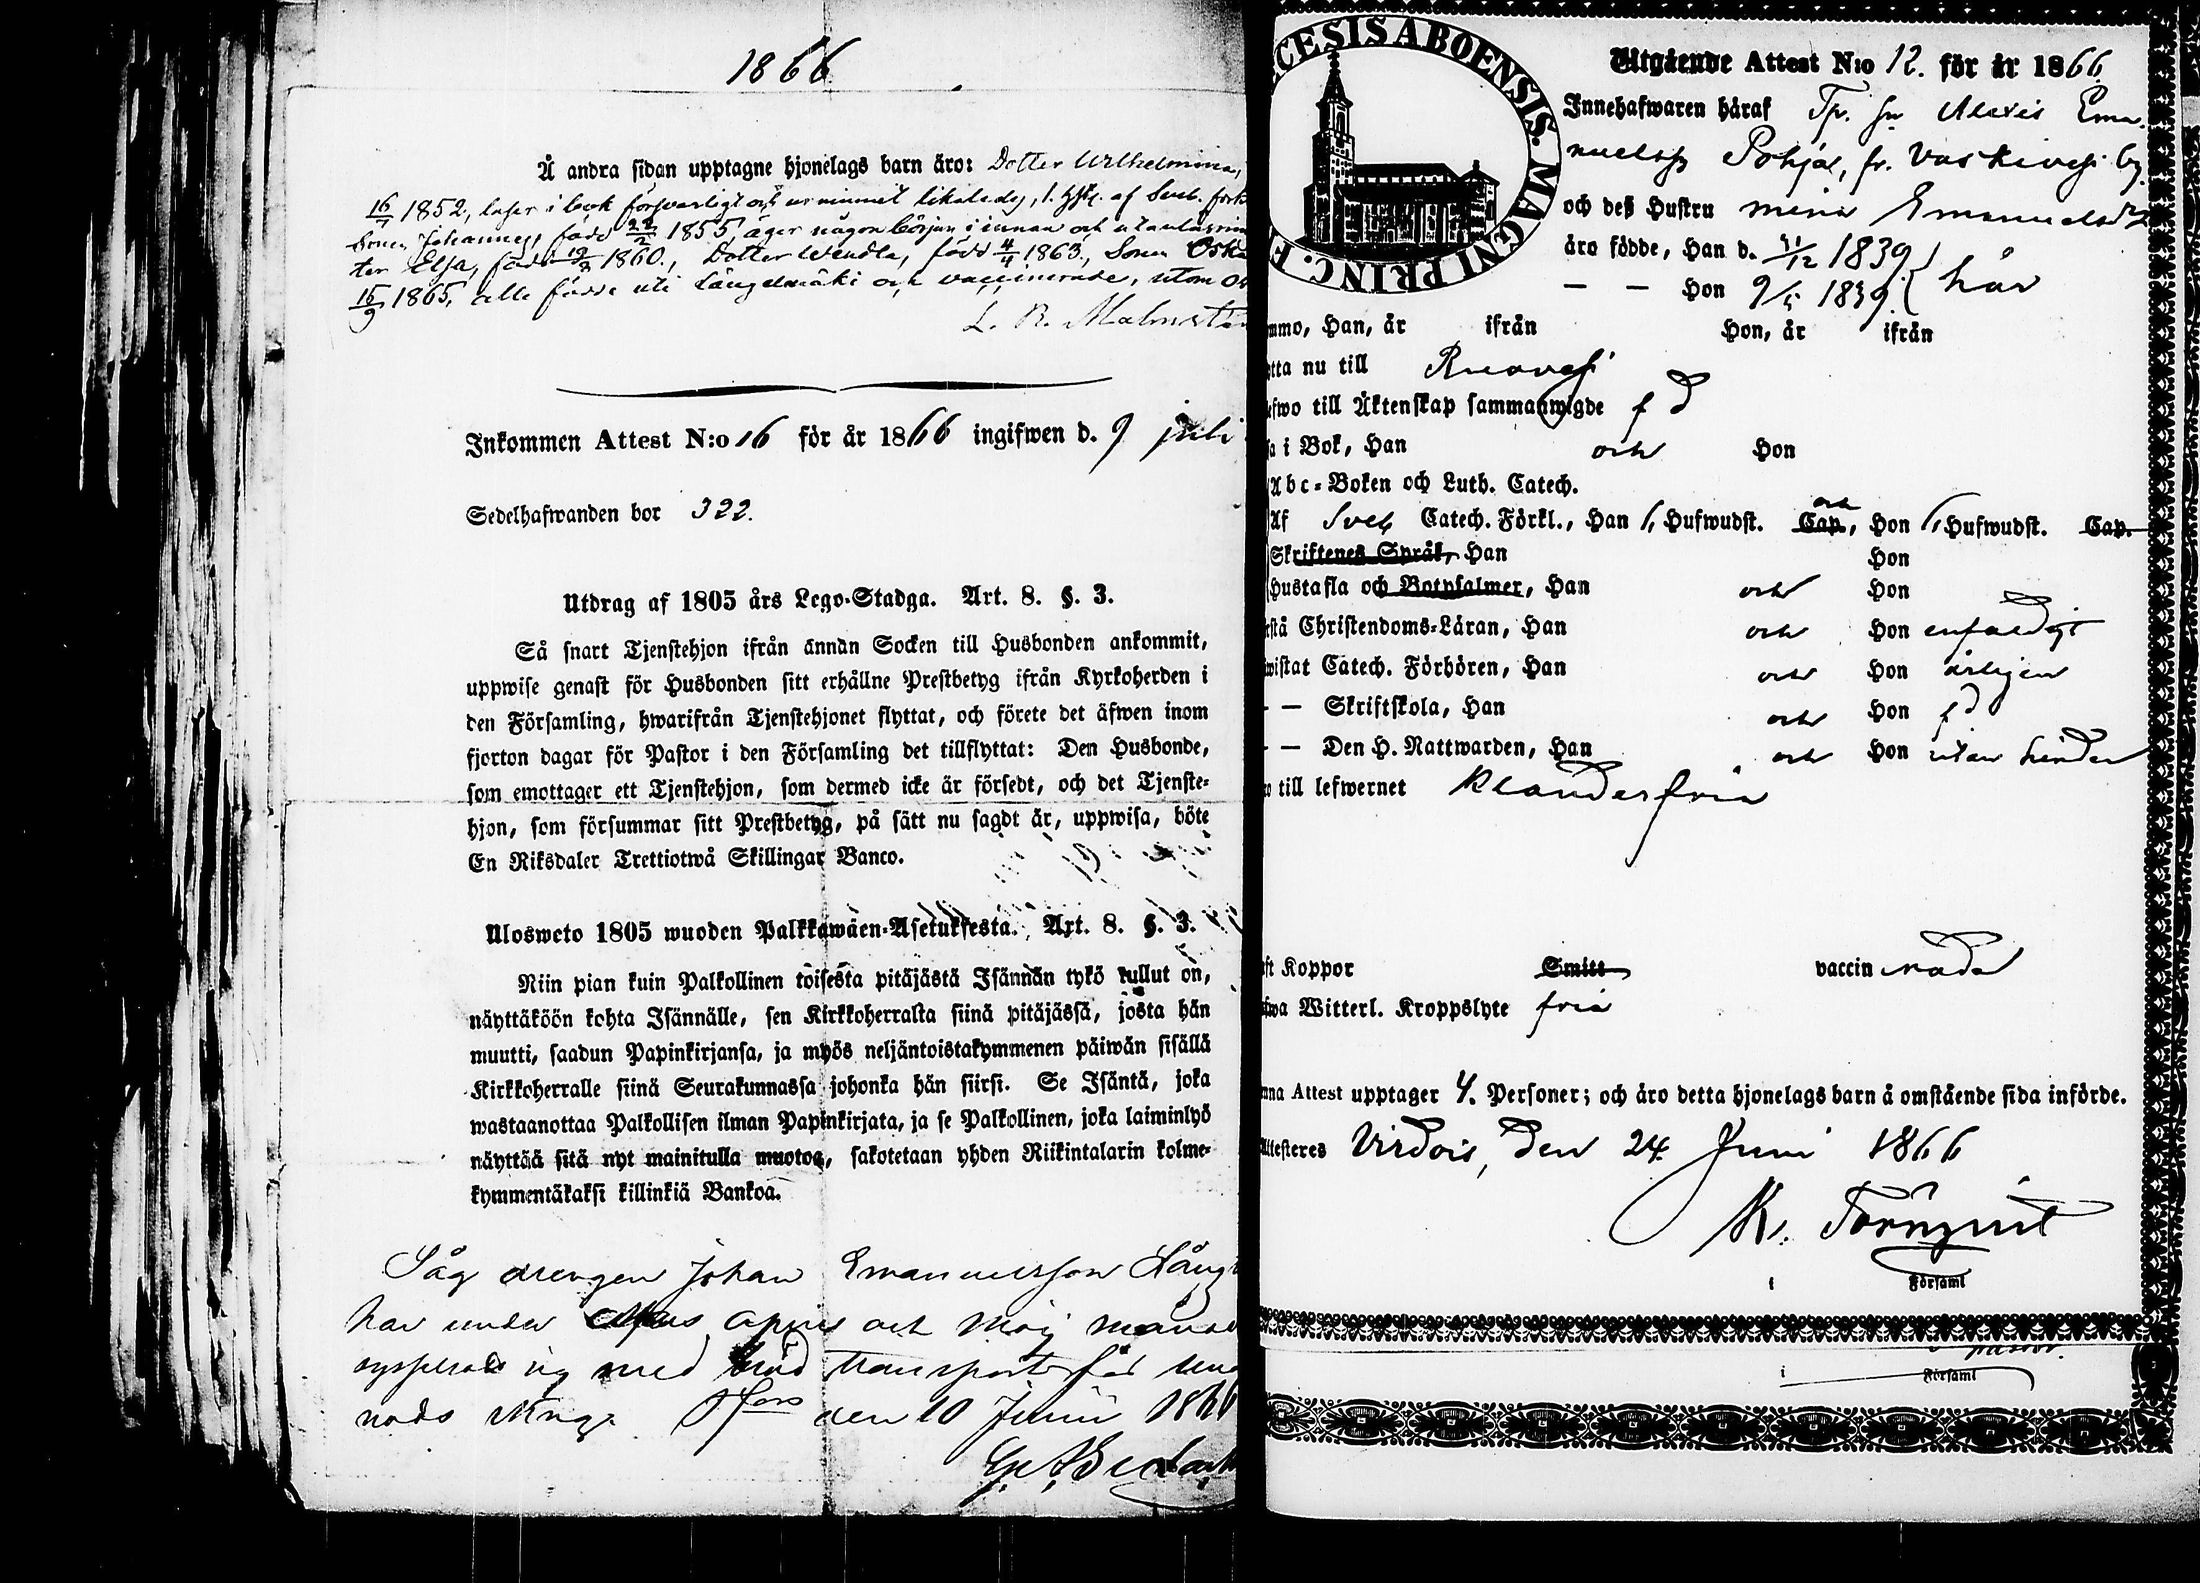 1866
Å andra sidan upptagne hjonelags barn äro: Dotter Wilhelmina,
16/7 1852, läser i bok försvarligt och ur minnet likaledes, 1. hst. af Sveb. förk
Sonen Johannes, född 22/2 1855, äger någon början i innan och utanläsnin
ter Elsa, född 19/3 1860., Dotter Wendla, född 4/4 1863., Sonen Oska
15/9 1865, alla födde uti Längelmäki och vaccinerade, utom Os
L. R. Malmstr
Inkommen Attest N:o 16 för år 1866 ingifwen d. 9 juli
Sedelhafwanden bor 322.
Utdrag af 1805 års Lego-Stadga. Art. 8. §. 3.
Så snart Tjenstehjon ifrån annan Socken till Husbonden ankommit,
uppwise genast för Husbonden sitt erhållne Prestbetyg ifrån Kyrkoherden i
den Församling, hwarifrån Tjenstehjonet flyttat, och förete det äfwen inom
fjorton dagar för Pastor i den Församling det tillflyttat: Den Husbonde,
som emottager ett Tjenstehjon, som dermed icke är försedt, och det Tjenste-
hjon, som försummar sitt Prestbetyg, på sätt nu sagdt är, uppwisa, böte
En Riksdaler Trettiotwå Skillingar Banco.
Ulosweto 1805 wuoden Palkkawäen-Asetuksesta. Art. 8. §. 3.
Niin pian kuin Palkollinen toisesta pitäjästä Isännän tykö tullut on,
näyttäköön kohta Isännälle, sen Kirkkoherralta siinä pitäjässä, josta hän
muutti, saadun Papinkirjansa, ja myös neljäntoistakymmenen päiwän sisällä
Kirkkoherralle siinä Seurakunnassa johonka hän siirsi. Se Isäntä, joka
wastaanottaa Palkollisen ilman Papinkirjata, ja se Palkollinen, joka laiminlyö
näyttää sitä nyt mainitulla muotoa, sakotetaan yhden Riikintalarin kolme-
kymmentäkaksi killinkiä Bankoa.
Såg drengen Johan Emanuelsson Lång
har under April och Maij månad
sig med transport för
den 10 Junii 1866
CESIS ABOENSIS. MAGNI PRINC. F
Utgående Attest N:o 12. för år 1866.
Innehafwaren häraf Tp. sn Alexis Ema-
nuelss Pohjal, fr. Vaskivesi by
och deß Hustru Mina Emanuelsdr
äro födde, Han d. 11/12 1839
— — Hon 9/5 1839. } här
mmo, Han, år ifrån Hon, år ifrån
etta nu till Ruovesi
efwo till Äktenskap sammanwigde f d
a i Bok, Han och Hon
Abc-Boken och Luth. Catech.
Af Sveb Catech. Förkl., Han 1, Hufwudst. Cap. och, Hon 1, Hufwudst. Cap.
Skriftenes Språk, Han Hon
Hustafla och Botpsalmer, Han och Hon
rstå Christendoms-Läran, Han och Hon enfaldigt
wistat Catech. Förhören, Han och Hon årligen
— — Skriftskola, Han och Hon f d
— — Den H. Nattwarden, Han och Hon utan hinder
o till lefwernet klanderfria
ft Koppor Smitt vaccin erade
fwa Witterl. Kroppslyte fria
nna Attest upptager 4. Personer; och äro detta hjonelags barn å omstående sida införde.
Attesteres Virdois, den 24 Juni 1866
K. Törnqvist
i Församl
pastor.
i Församl